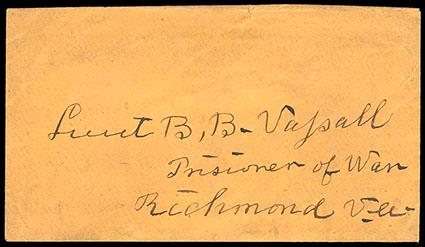 Lieut B, B- Vassall
Prisioner of War
Richmond Va